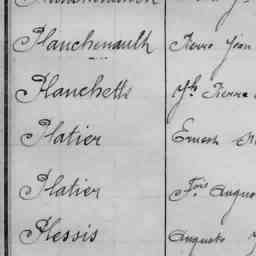 Planchenault Pierre Jean
Planchette Jh Pierre
Platier Ernest
Platier Fçois Augus
Plessis Auguste